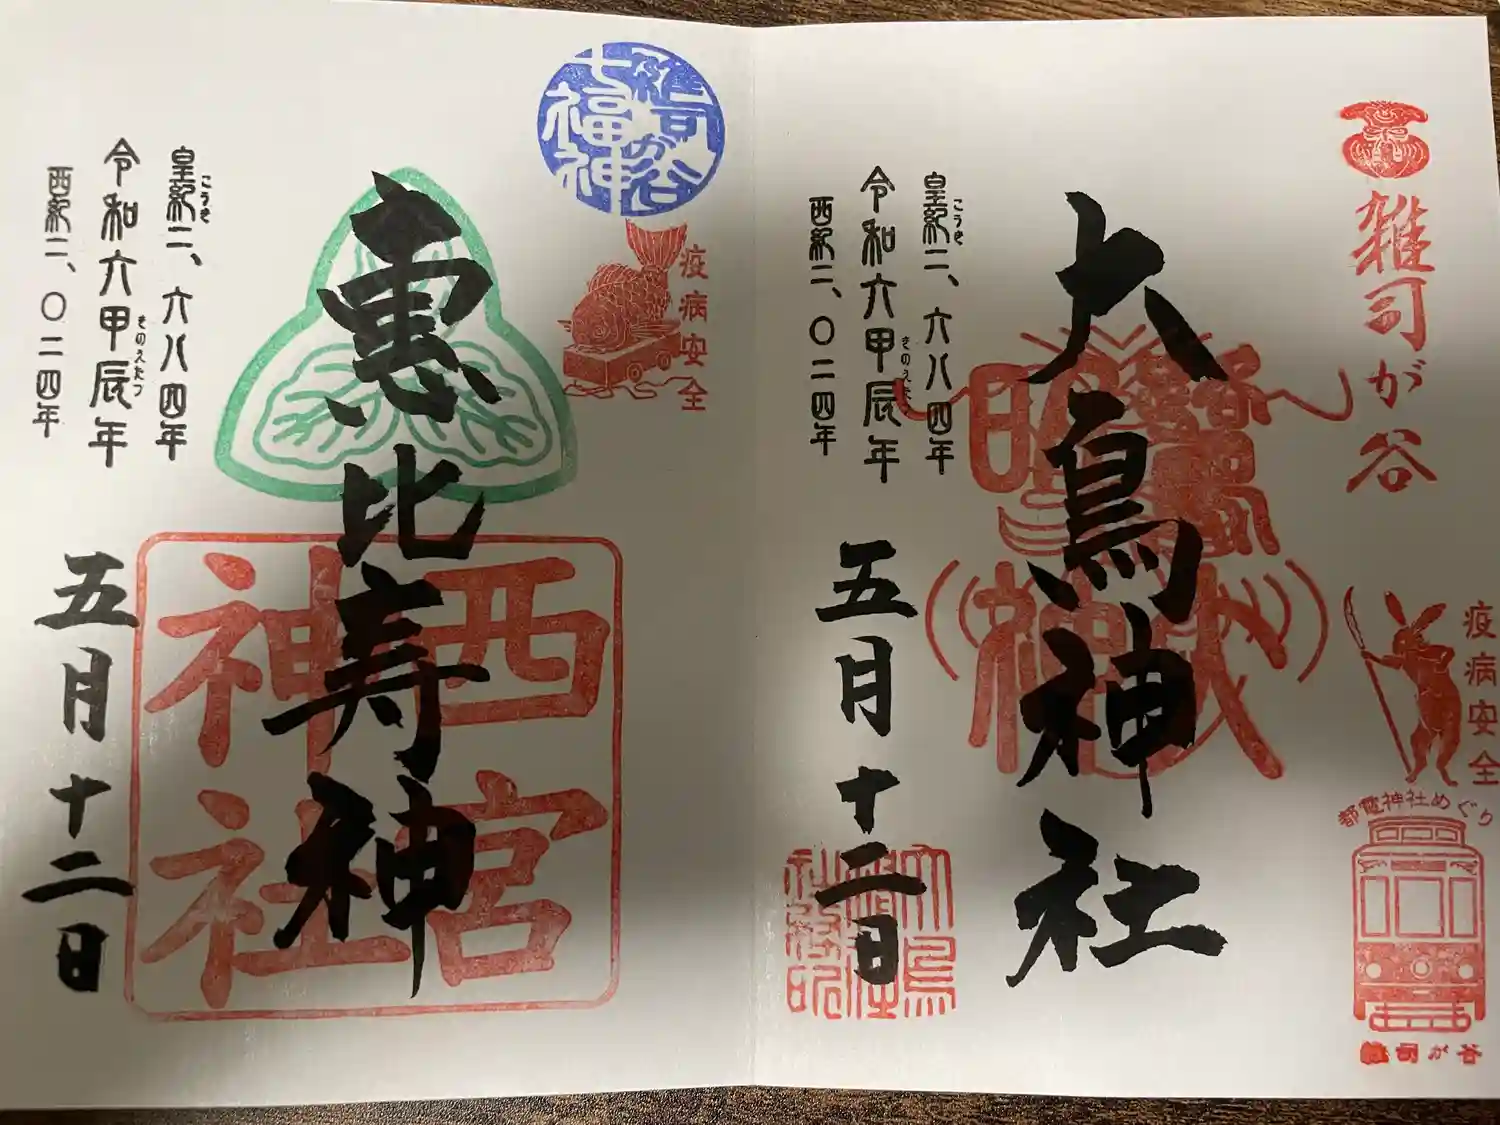 雑司が谷
疫病安全
都電神社めぐり
雑司が谷
大鳥神社
皇紀二、六八四年
こうき
令和六甲辰年
きのえたつ
西紀二、〇二四年
五月十二日
雑司が谷
七福神
疫病安全
恵比寿神
西宮
神社
皇紀二、六八四年
こうき
令和六甲辰年
きのえたつ
西紀二、〇二四年
五月十二日